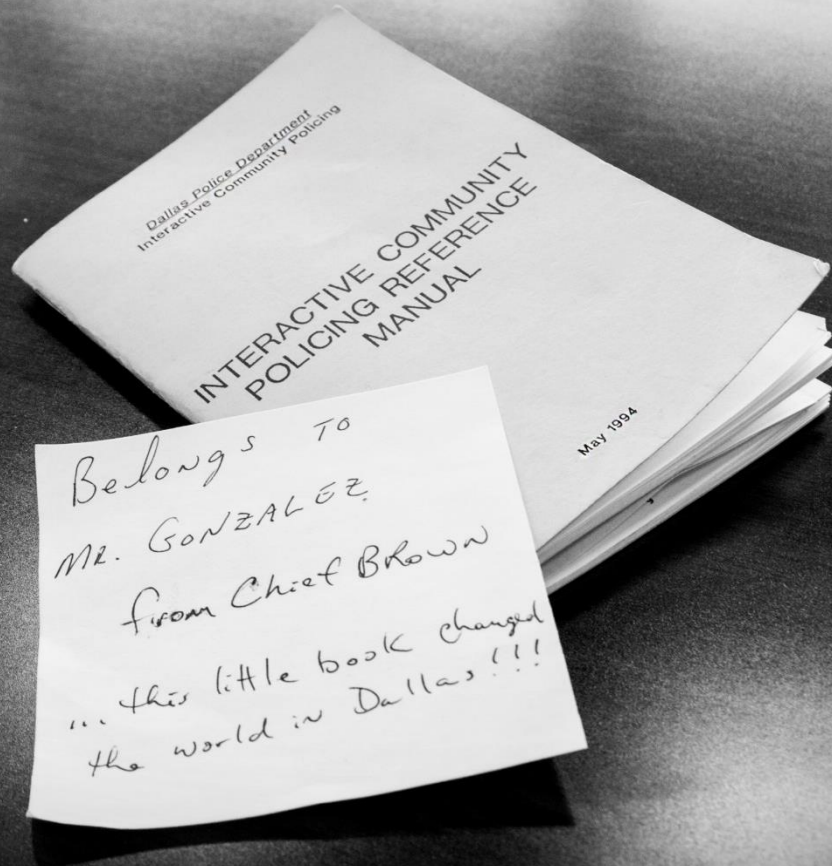 Dallas Police Department
Interactive Community Policing
INTERACTIVE COMMUNITY
POLICING REFERENCE
MANUAL
May 1994
Belongs TO
MR. GONZALEZ
from Chief BROWN
... this little book changed
the world in Dallas!!!